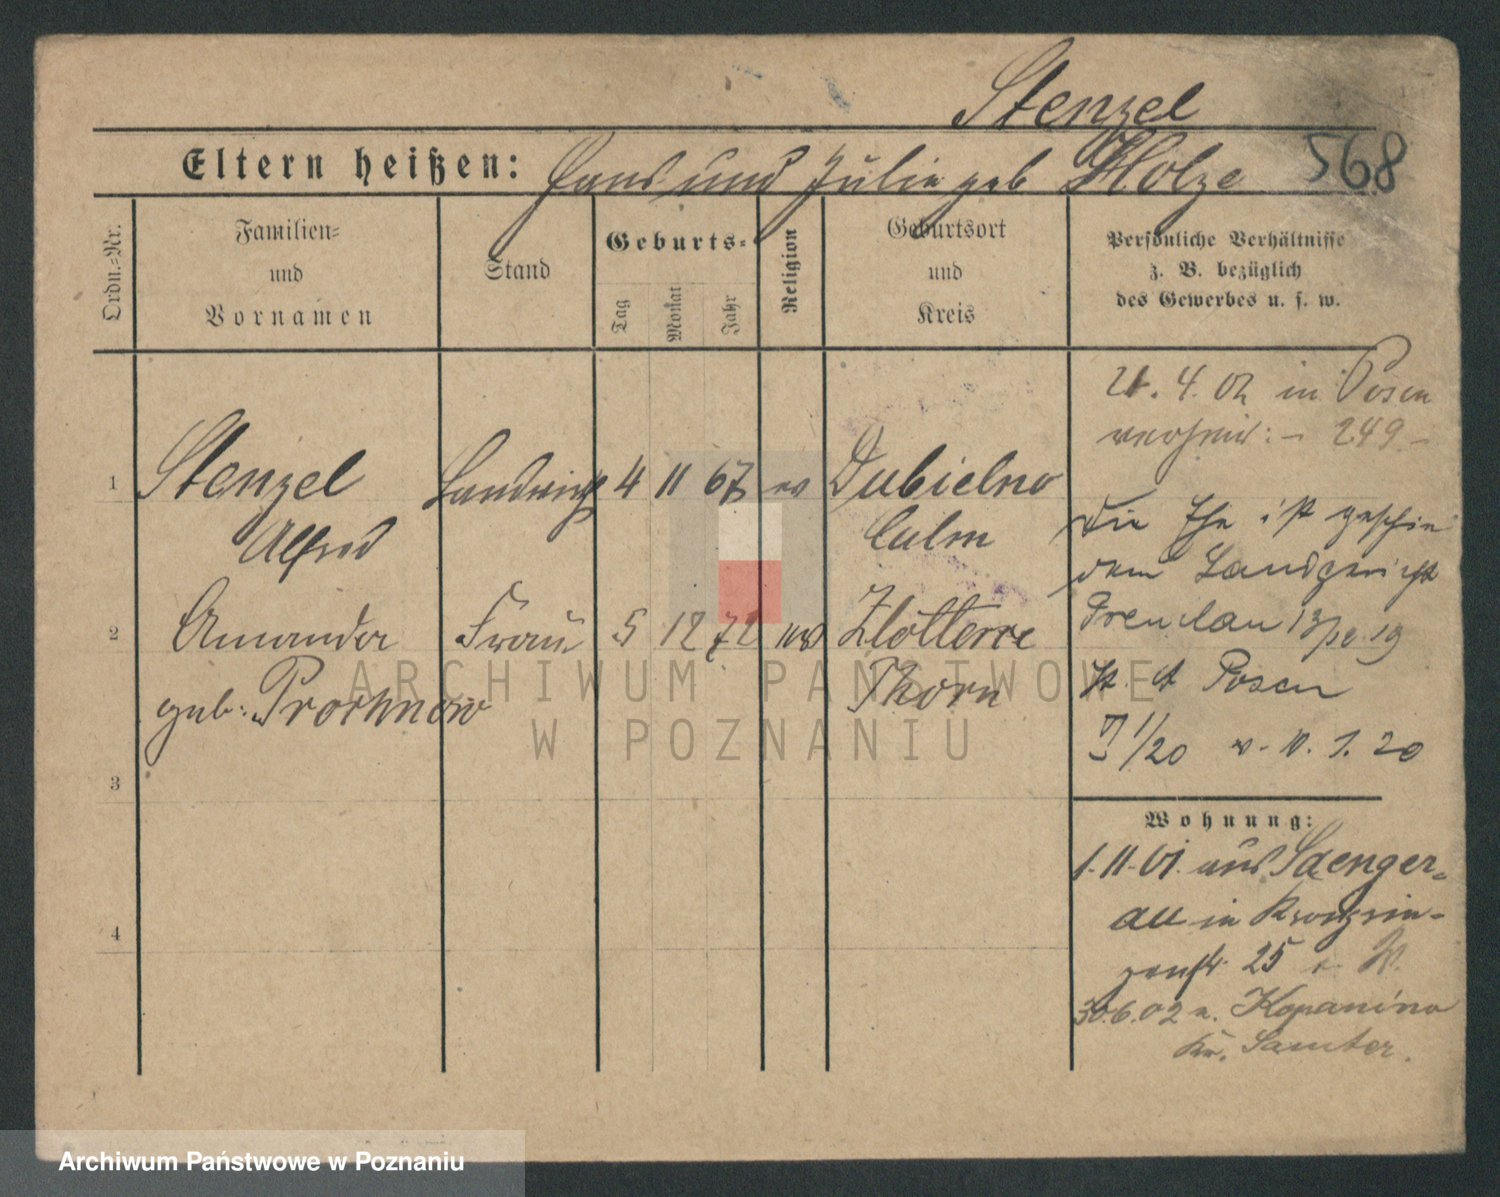 Stenzel
Eltern heißen: Hans und Julie geb Holze 568
Ordn.-Nr.
Familien-
und
Vornamen
Stand
Geburts-
Tag
Monat
Jahr
Religion
Geburtsort
und
Kreis
Persönliche Verhältnisse
z. B. bezüglich
des Gewerbes u. s. w.
1 Stenzel Landwirt 4 11 67 ev Dubielno
Alfred Culm
2 Amanda Frau 5 12 72 ev Zlotterie
geb: Prochnow Thorn
3
4
21. 4. 02 in Posen
verheir: - 249 -
Die Ehe ist geschie
den Landgericht
Prenzlau 13/12.19
St. A Posen
I 1/20 v. 10. 1. 20
Wohnung:
1.11.01. aus Saenger-
au in Kronprin-
zenstr. 25
30.6.02 n. Kopanino
Kr. Samter.
ARCHIWUM PAŃSTWOWE
W POZNANIU
Archiwum Państwowe w Poznaniu